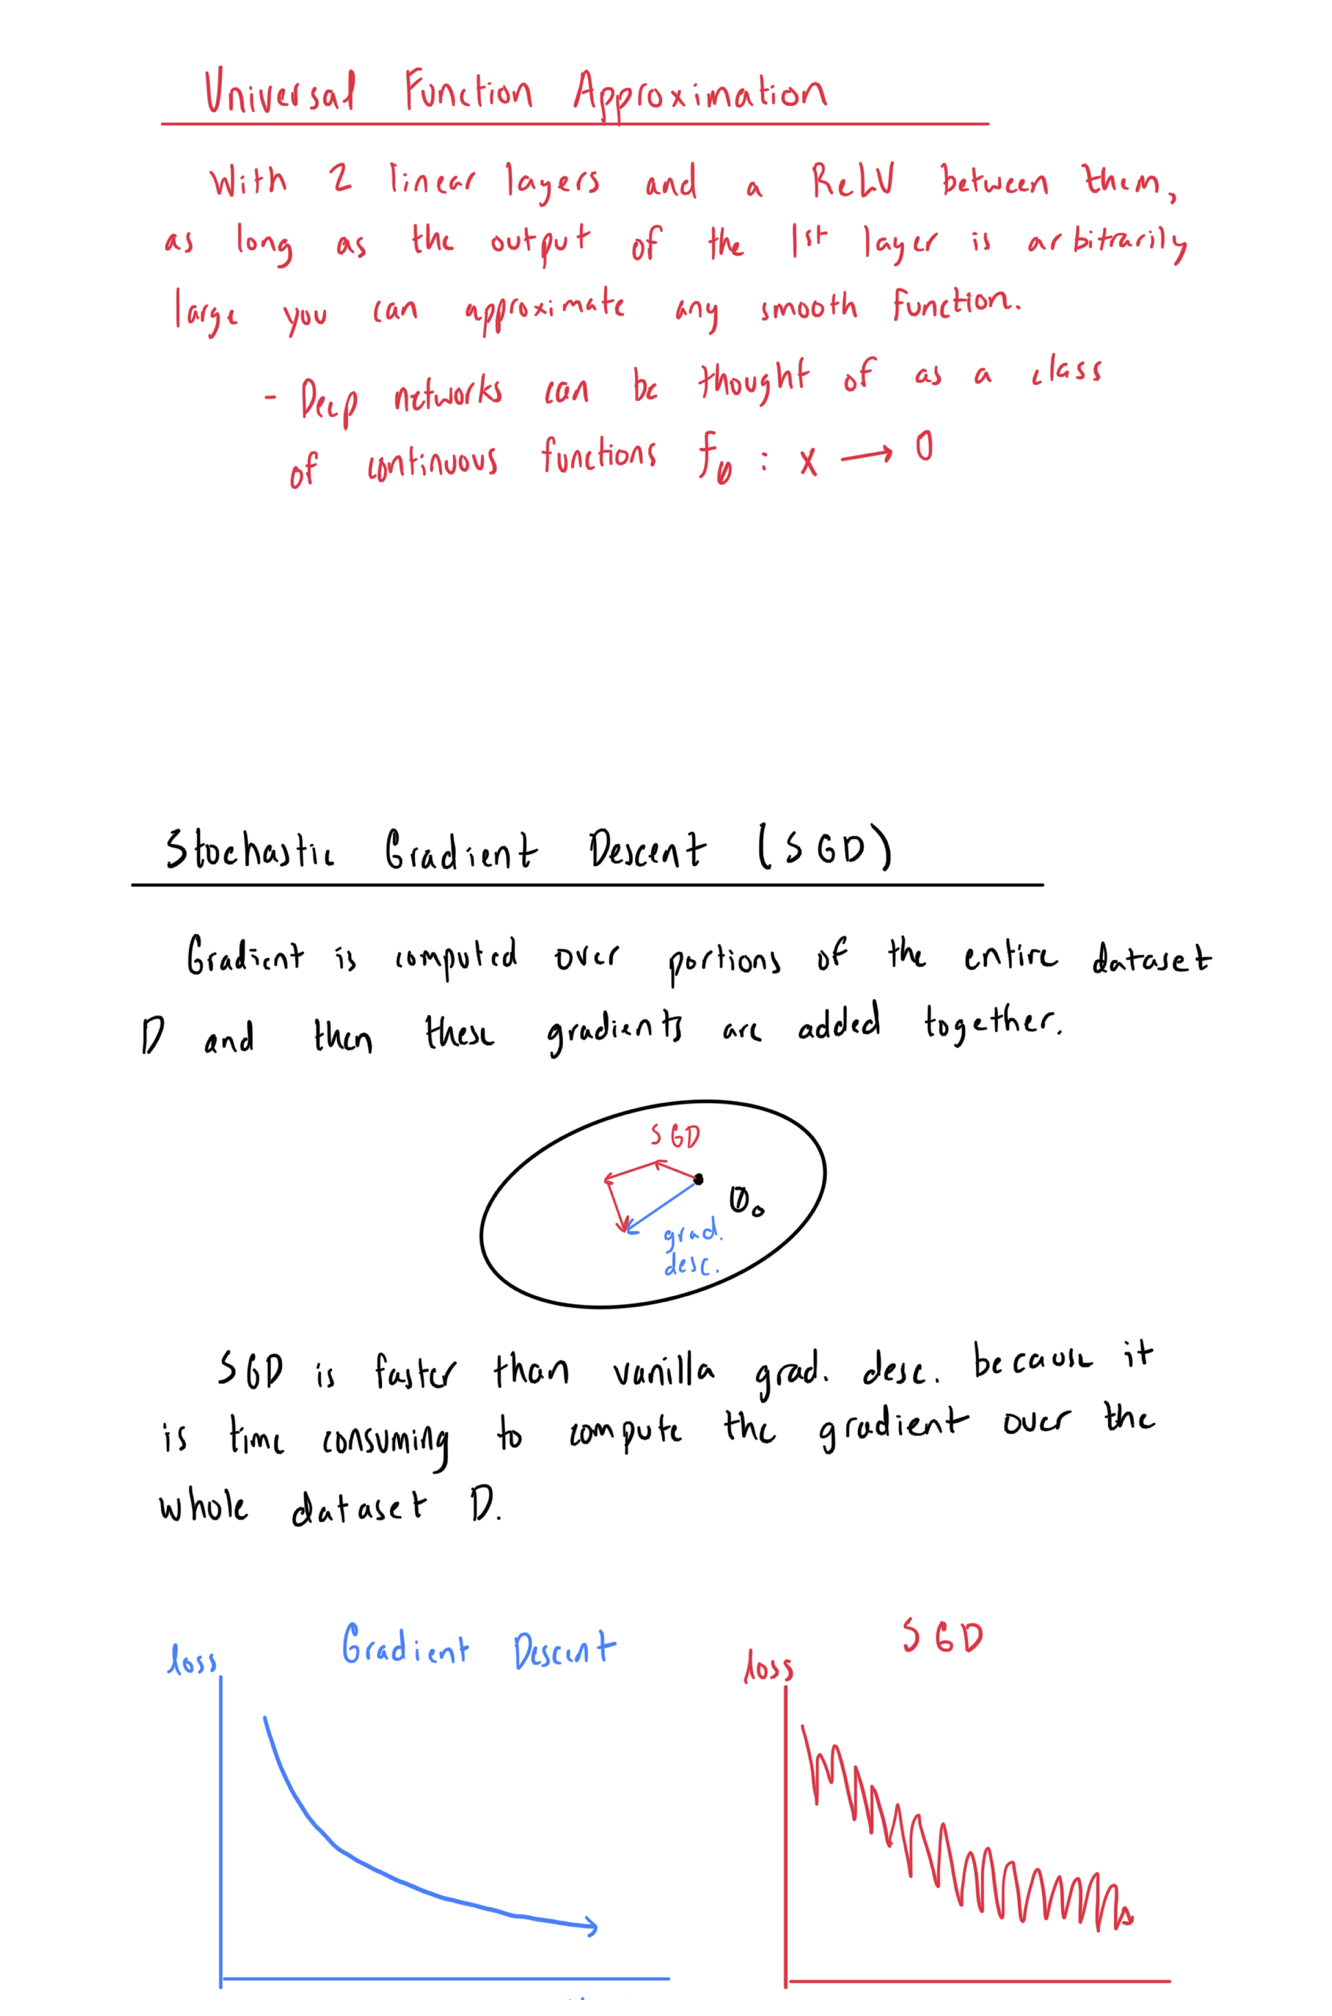 Universal Function Approximation
With 2 linear layers and a ReLU between them,
as long as the output of the 1st layer is arbitrarily
large you can approximate any smooth function.
- Deep networks can be thought of as a class
of continuous functions f_θ : x → O
Stochastic Gradient Descent (SGD)
Gradient is computed over portions of the entire dataset
D and then these gradients are added together.
SGD
θ₀
grad.
desc.
SGD is faster than vanilla grad. desc. because it
is time consuming to compute the gradient over the
whole dataset D.
Gradient Descent
loss
SGD
loss